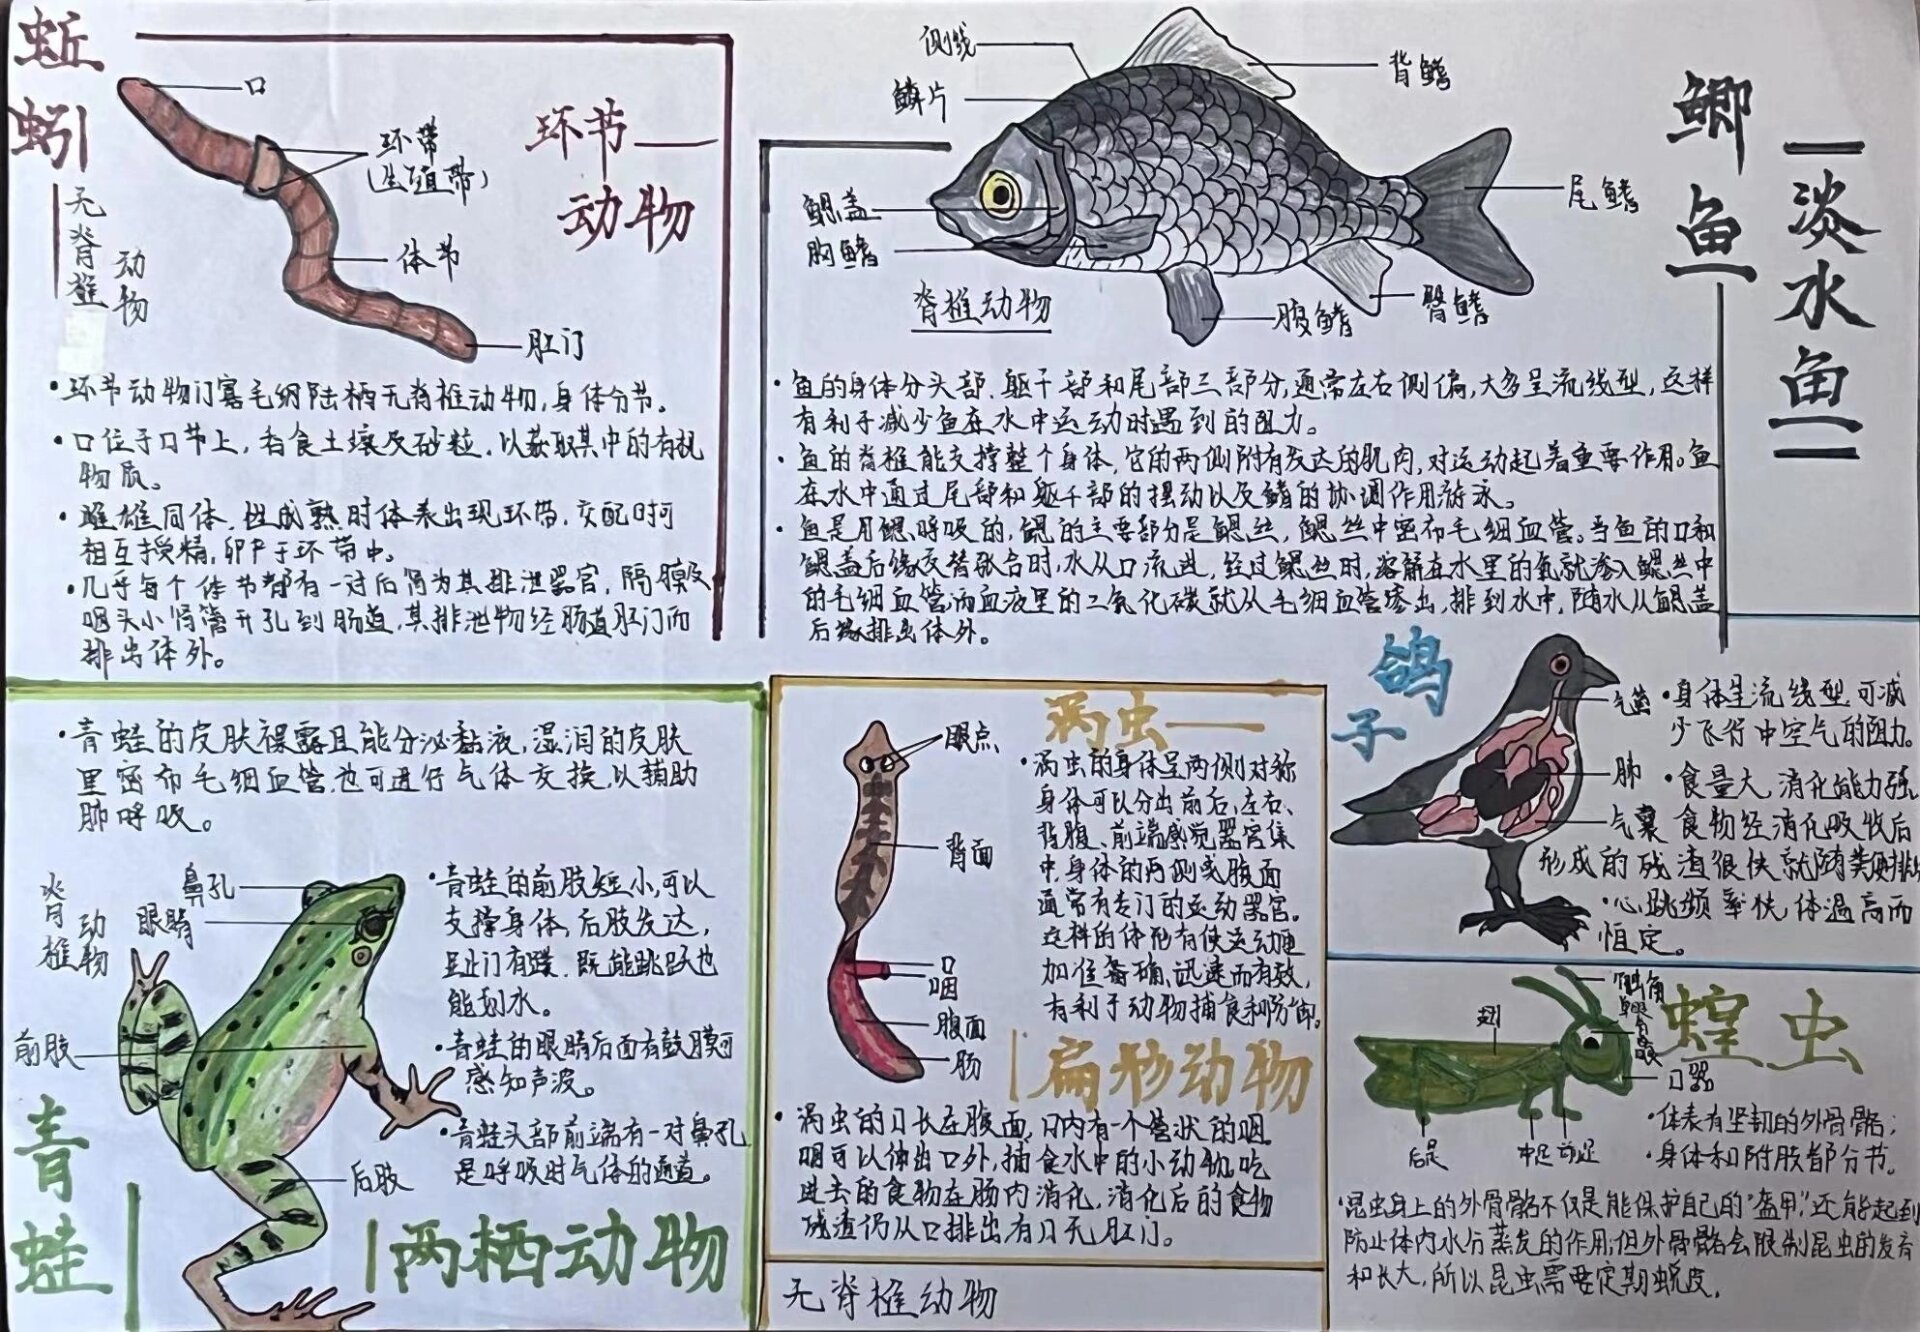 蚯
蚓
无脊椎
动物
口
环带
(生殖带)
体节
肛门
环节
动物
·环节动物门寡毛纲陆栖无脊椎动物,身体分节。
·口位于口节上,吞食土壤及砂粒,以获取其中的有机
物质。
·雌雄同体,性成熟时体表出现环带,交配时可
相互授精,卵产于环带中。
·几乎每个体节都有一对后肾为其排泄器官,隔膜及
咽头小肾管开孔到肠道,其排泄物经肠道肛门而
排出体外。
侧线
鳞片
鳃盖
胸鳍
背鳍
尾鳍
臀鳍
腹鳍
脊椎动物
鲫
鱼
淡
水
鱼
·鱼的身体分头部、躯干部和尾部三部分,通常左右侧偏,大多呈流线型,这样
有利于减少鱼在水中运动时遇到的阻力。
·鱼的脊椎能支撑整个身体,它的两侧附有发达的肌肉,对运动起着重要作用。鱼
在水中通过尾部和躯干部的摆动以及鳍的协调作用游泳。
·鱼是用鳃呼吸的,鳃的主要部分是鳃丝,鳃丝中密布毛细血管。当鱼的口和
鳃盖后缘交替张合时,水从口流进,经过鳃丝时,溶解在水里的氧就渗入鳃丝中
的毛细血管;而血液里的二氧化碳就从毛细血管渗出,排到水中,随水从鳃盖
后缘排出体外。
·青蛙的皮肤裸露且能分泌黏液,湿润的皮肤
里密布毛细血管,也可进行气体交换,以辅助
肺呼吸。
脊椎
动物
鼻孔
眼睛
前肢
后肢
·青蛙的前肢短小,可以
支撑身体,后肢发达,
趾间有蹼,既能跳跃也
能划水。
·青蛙的眼睛后面有鼓膜可
感知声波。
·青蛙头部前端有一对鼻孔
是呼吸时气体的通道。
青
蛙
两栖动物
涡虫
眼点
背面
口
咽
腹面
肠
·涡虫的身体呈两侧对称
身体可以分出前后、左右、
背腹、前端感觉器官集
中,身体的两侧或腹面
通常有专门的运动器官。
这样的体形有使运动更
加准备确、迅速而有效,
有利于动物捕食和防御。
扁形动物
·涡虫的口长在腹面,口内有一个管状的咽。
咽可以伸出口外,捕食水中的小动物。吃
进去的食物在肠内消化,消化后的食物
残渣仍从口排出有口无肛门。
无脊椎动物
鸽
子
气管
肺
气囊
·身体呈流线型,可减
少飞行中空气的阻力。
·食量大,消化能力强
食物经消化吸收后
形成的残渣很快就随粪便排出
·心跳频率快,体温高而
恒定。
蝗虫
触角
翅
口器
后足
中足
前足
·体表有坚韧的外骨骼;
·身体和附肢都分节。
·昆虫身上的外骨骼不仅是能保护自己的"盔甲",还能起到
防止体内水分蒸发的作用;但外骨骼会限制昆虫的发育
和长大,所以昆虫需要定期蜕皮。